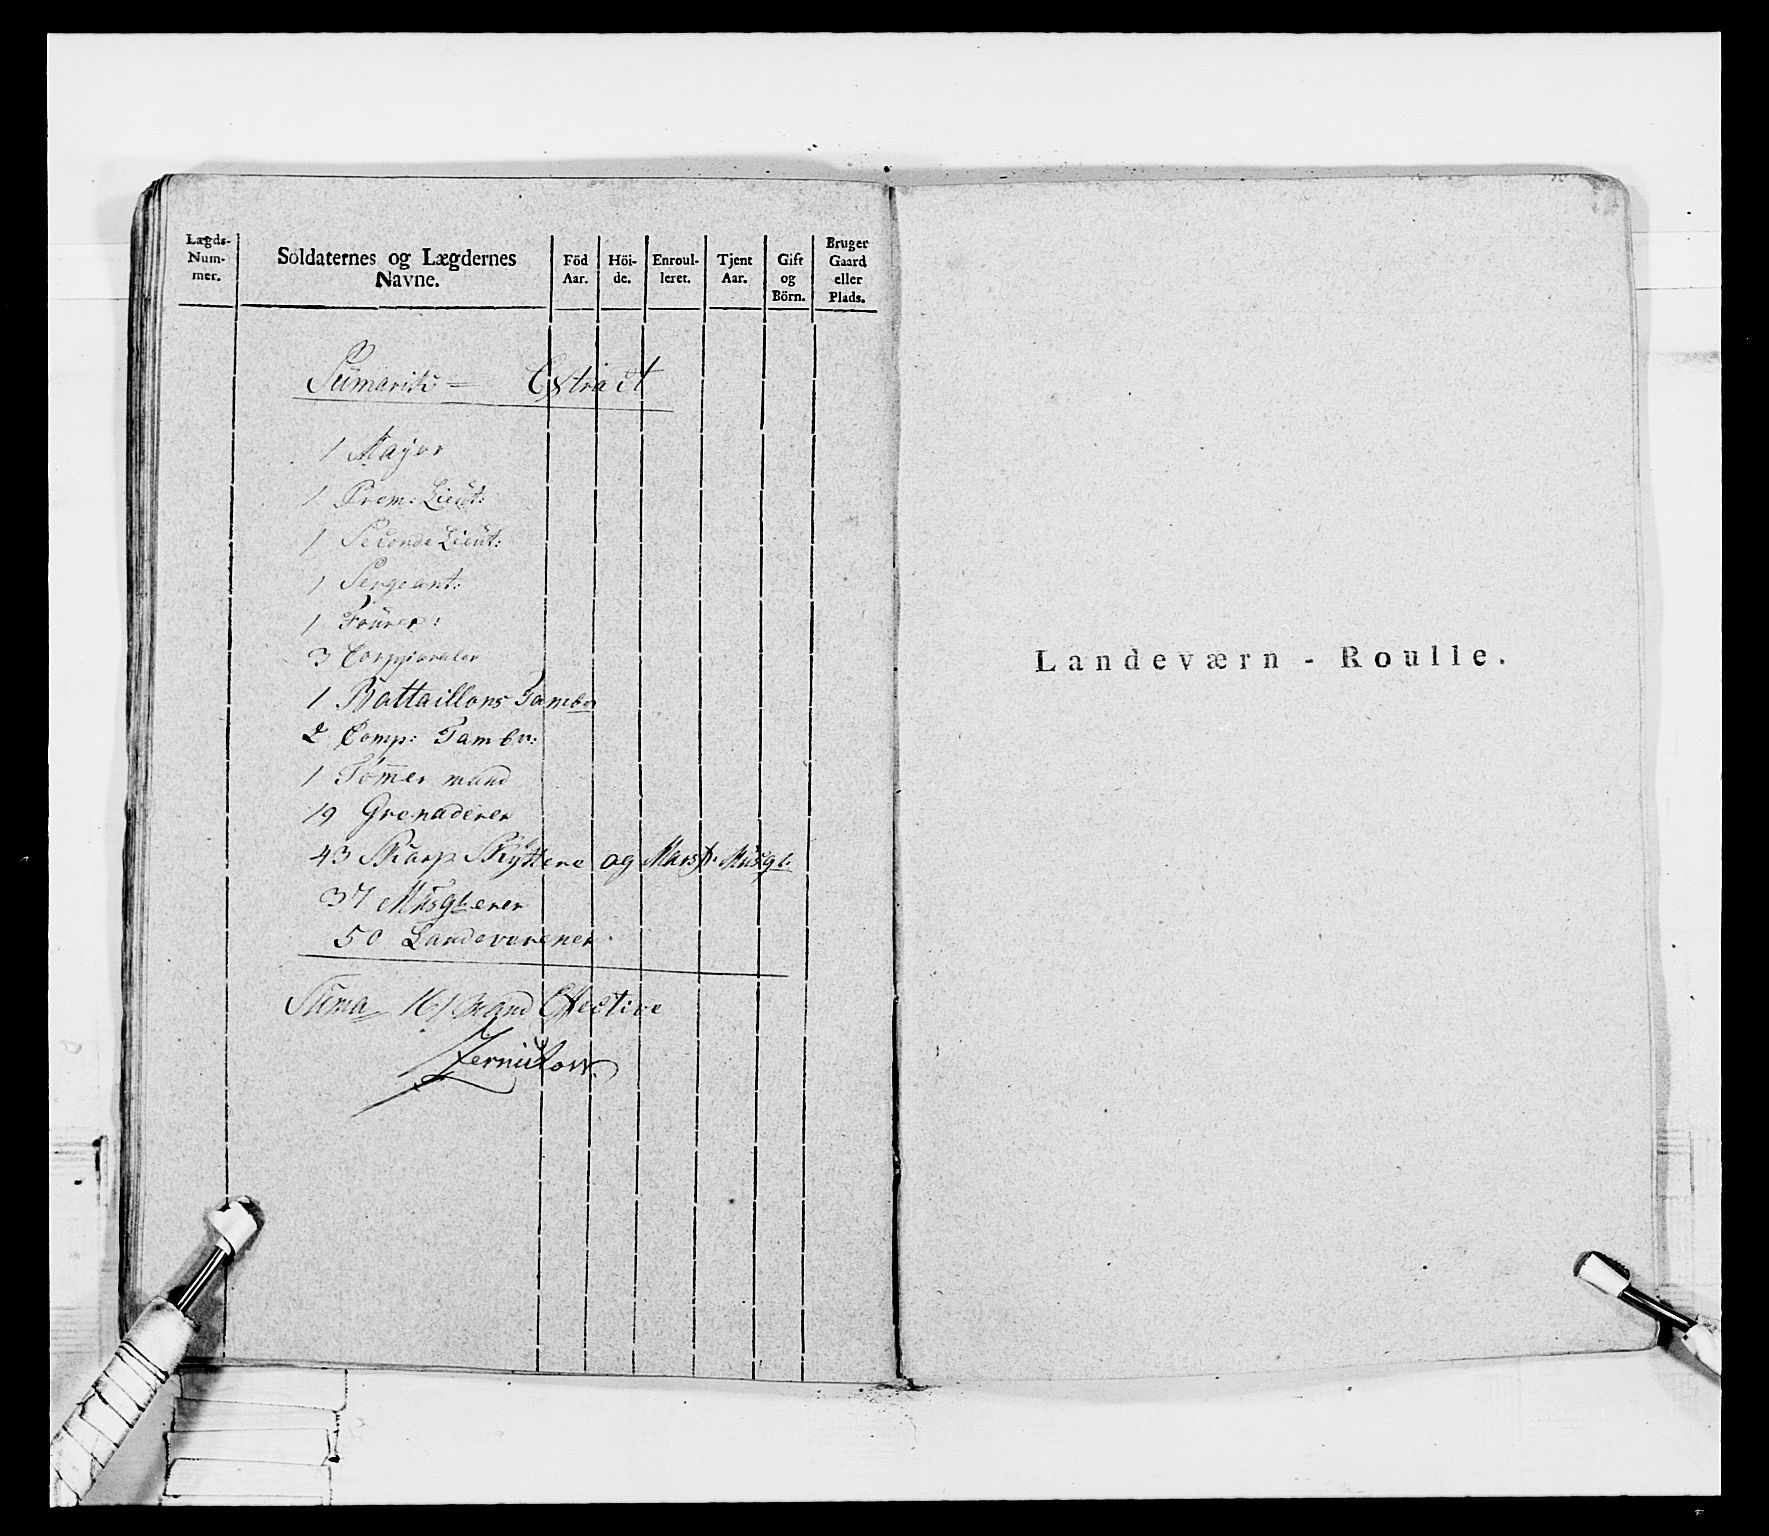 Lægds-
Num-
mer.
Soldaternes og Lægdernes
Navne.
Föd
Aar.
Höi-
de.
Enroul-
leret.
Tjent
Aar.
Gift
og
Börn.
Bruger
Gaard
eller
Plads.
Sumarisk Extract
1 Major
1 Prem: Lieut:
1 Seconde Lieut:
1 Sergeant:
1 Fourer:
3 Corporaler
1 Battaillons Tambr
2 Comp: Tambr:
1 Tömermand
19 Grenaderer
43 Skarp Skyttere og Musqt:
37 Musqterer
50 Landeværener
Suma 161 Mand Effective
Zernickow.
Landeværn - Roulle.